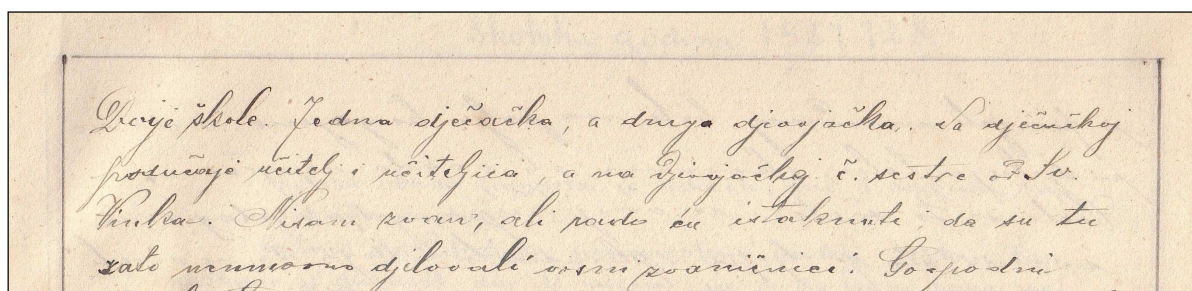 Dvije škole. Jedna dječačka, a druga djevojačka. Na dječačkoj
podučaje učitelj i učiteljica, a na djevojačkoj č. sestre od Sv.
Vinka. Nisam zvan, ali rado ću istaknuti da su tu
zato neumorno djelovali vrsni zvaničnici: Gospodin